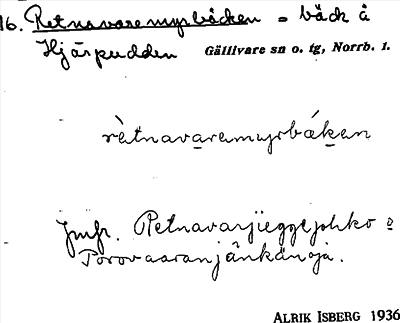 16. Retnavaremyrbäcken = bäck å
Hjärpudden Gällivare sn o. tg, Norrb. l.
rètnavaremyrbákan
Jmfr. Retnavarjieggejohko o
Porovaaranjänkänoja.
ALRIK ISBERG 1936